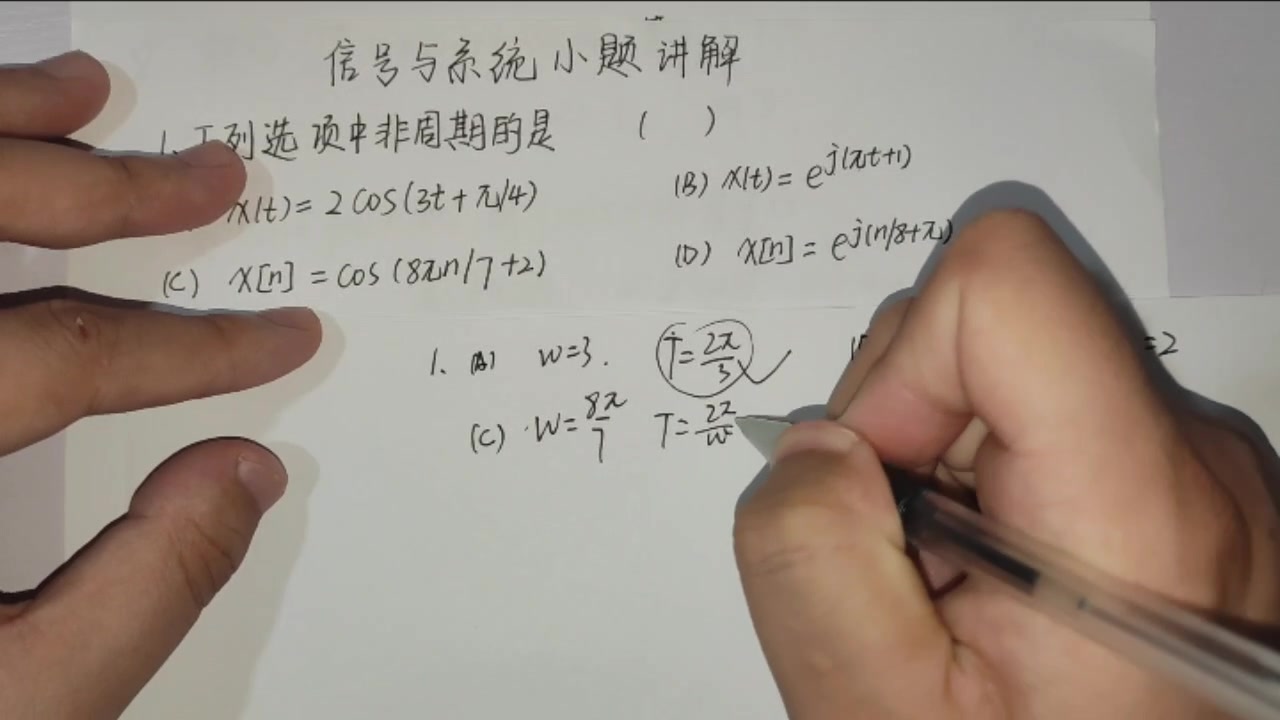 信号与系统小题讲解
1、下列选项中非周期的是 ( )
x(t) = 2cos(3t+π/4) (B) x(t) = e^{j(πt+1)}
(C) x[n] = cos(8πn/7+2) (D) x[n] = e^{j(n/8+π)}
1、(A) w=3. T=2π/3 ✓ =2
(C) w=8π/7 T=2π/w